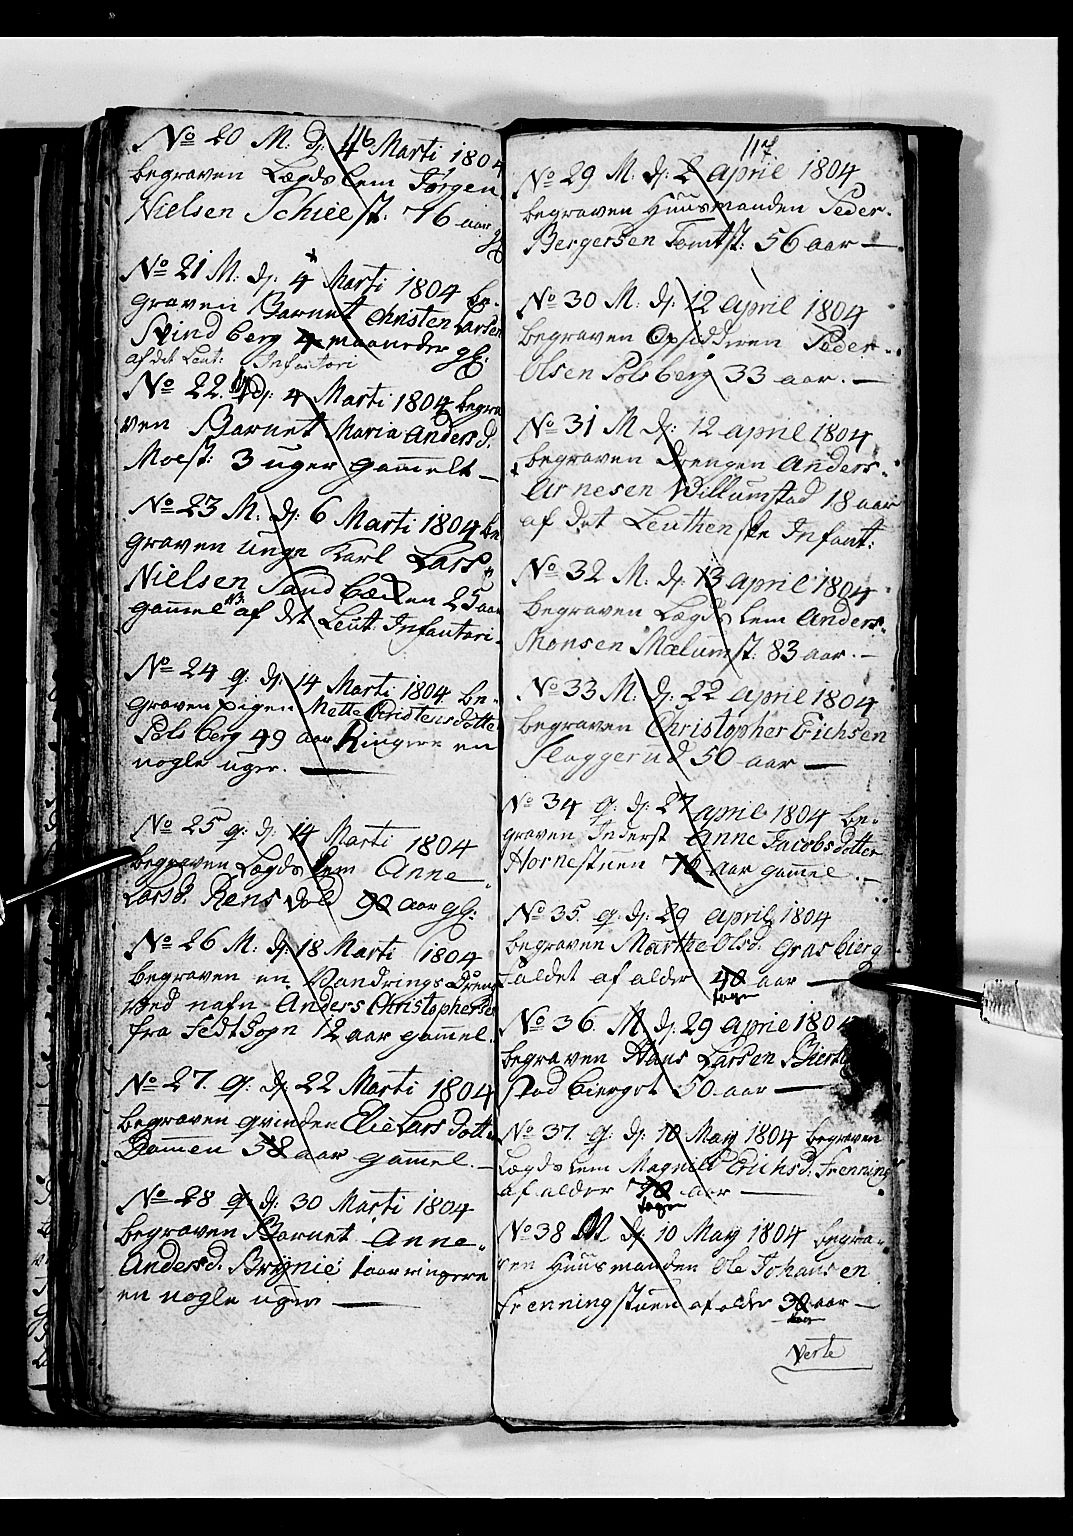 No 20 M. dj. 4 Marti 1804
begraven Lægdslem Jørgen
Nielsen Schieest: 76 aar gl
No 21 M: dj. 4 Marti 1804 be-
graven Barnet Christen Larsen
Spindberg 4 maaneder gl:
af det Leut: Infantori
No 22. dj. 4 Marti 1804 begra
ven Barnet Maria Andersd.
Moest: 3 uger gammelt —
No 23 M. dj. 6 Marti 1804 be
graven unge Karl Lars
Nielsen Sandbækken 25 aar
gammel af det Leut. Infantori
No 24 q. dj. 14 Marti 1804 be-
graven pigen Mette Christensdotter
Polsberg 49 aar Ringere en
nogle uger. —
No 25 q: dj. 14 Marti 1804
begraven Lægdslem Anne
Larsd. Rensvold 90 aar gl:
No 26 M: dj. 18 Marti 1804
begraven en Vandrings Dreng
ved nafn Anders Christophersen
fra Fedt Sogn 12 aar gammel.
No 27. q: dj 22 Marti 1804
begraven qvinden Elie Larsdotter
Dammen 58 aar gammel. —
No 28 q: dj. 30 Marti 1804
begraven Barnet Anne
Andersd. Brynie 1 aar ringere
en nogle uger —
117
No 29 M. dj. 2 april 1804
begraven Huusmanden Peder
Bergersen Tomtst: 56 aar —
No 30 M. dj. 12 april 1804
begraven Opsidderen Peder
Olsen Polsberg 33 aar. —
No 31 M dj. 12 april 1804
begraven Drengen Anders
Arnesen Willumstad 18 aar
af det Leuthenske Infant:
No 32 M. dj. 13 april 1804
begraven Lægdslem Anders
Monsen Mælumst: 83 aar. —
No 33 M. dj. 22 april 1804
begraven Christopher Erichsen
Flaggerud 50 aar —
No 34 q. dj. 27 april 1804 be-
graven Inderst Anne Jacobsdotter
Hornestuen aar gammel. —
No 35. q. dj. 29 april 1804
begraven Marthe Olsd. Grasbierg
Faldet af alder 40 aar —
No 36. M. dj. 29 april 1804
begraven Hans Larsen
stad bierget 50 aar —
No 37. q. dj. 10 May 1804 begraven
Lægdslem Magnild Erichsd. Frenning
af alder aar —
No 38 M dj. 10 May 1804 begra-
ven Huusmanden Ole Johansen
Frenningstuen af alder 30 aar —
Verte